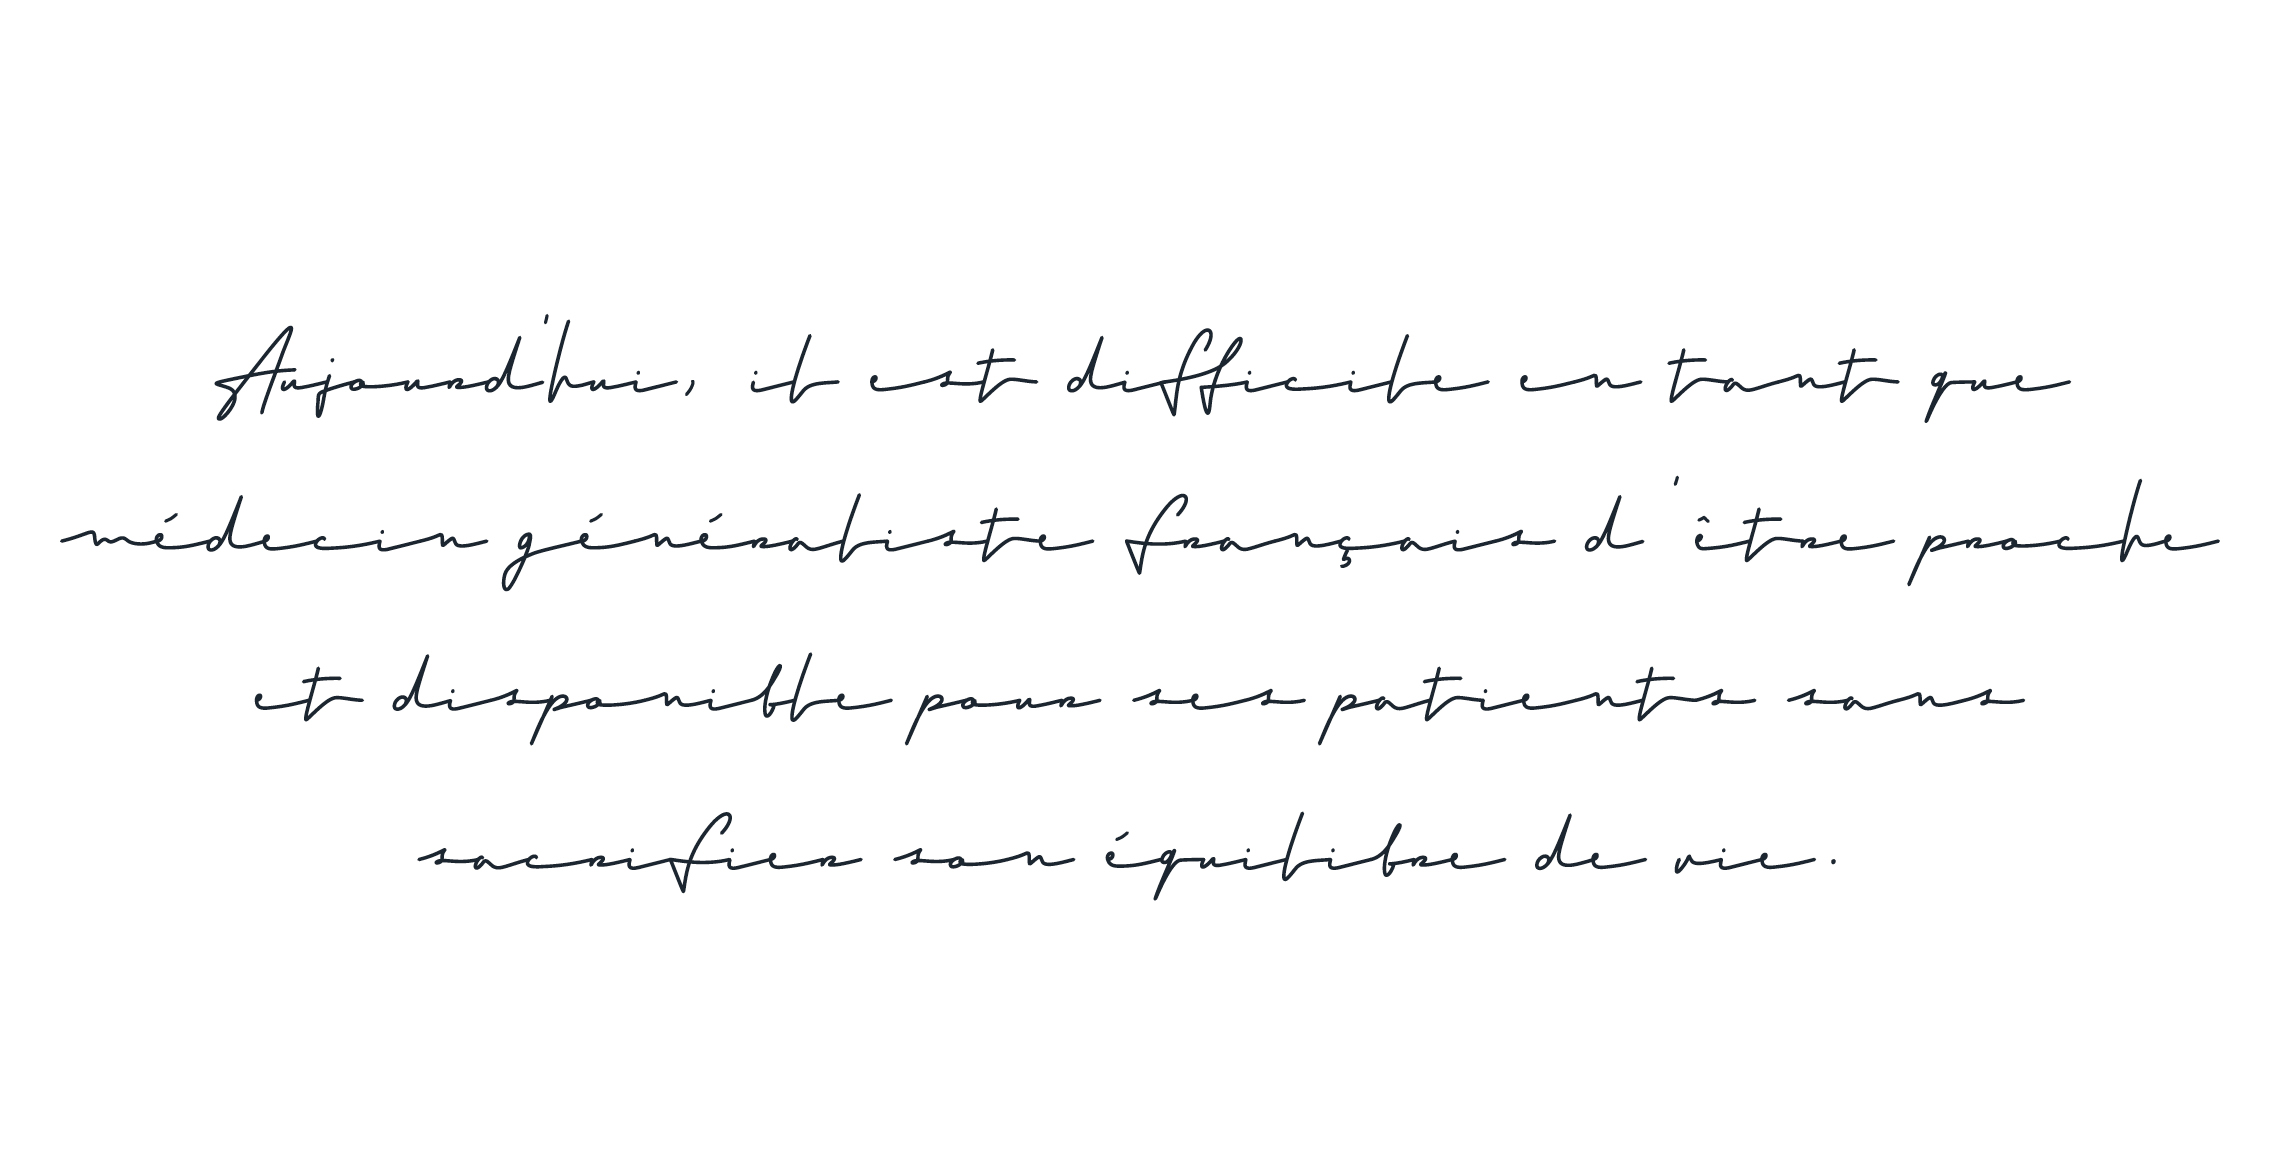 Aujourd'hui, il est difficile en tant que
médecin généraliste français d'être proche
et disponible pour ses patients sans
sacrifier son équilibre de vie.